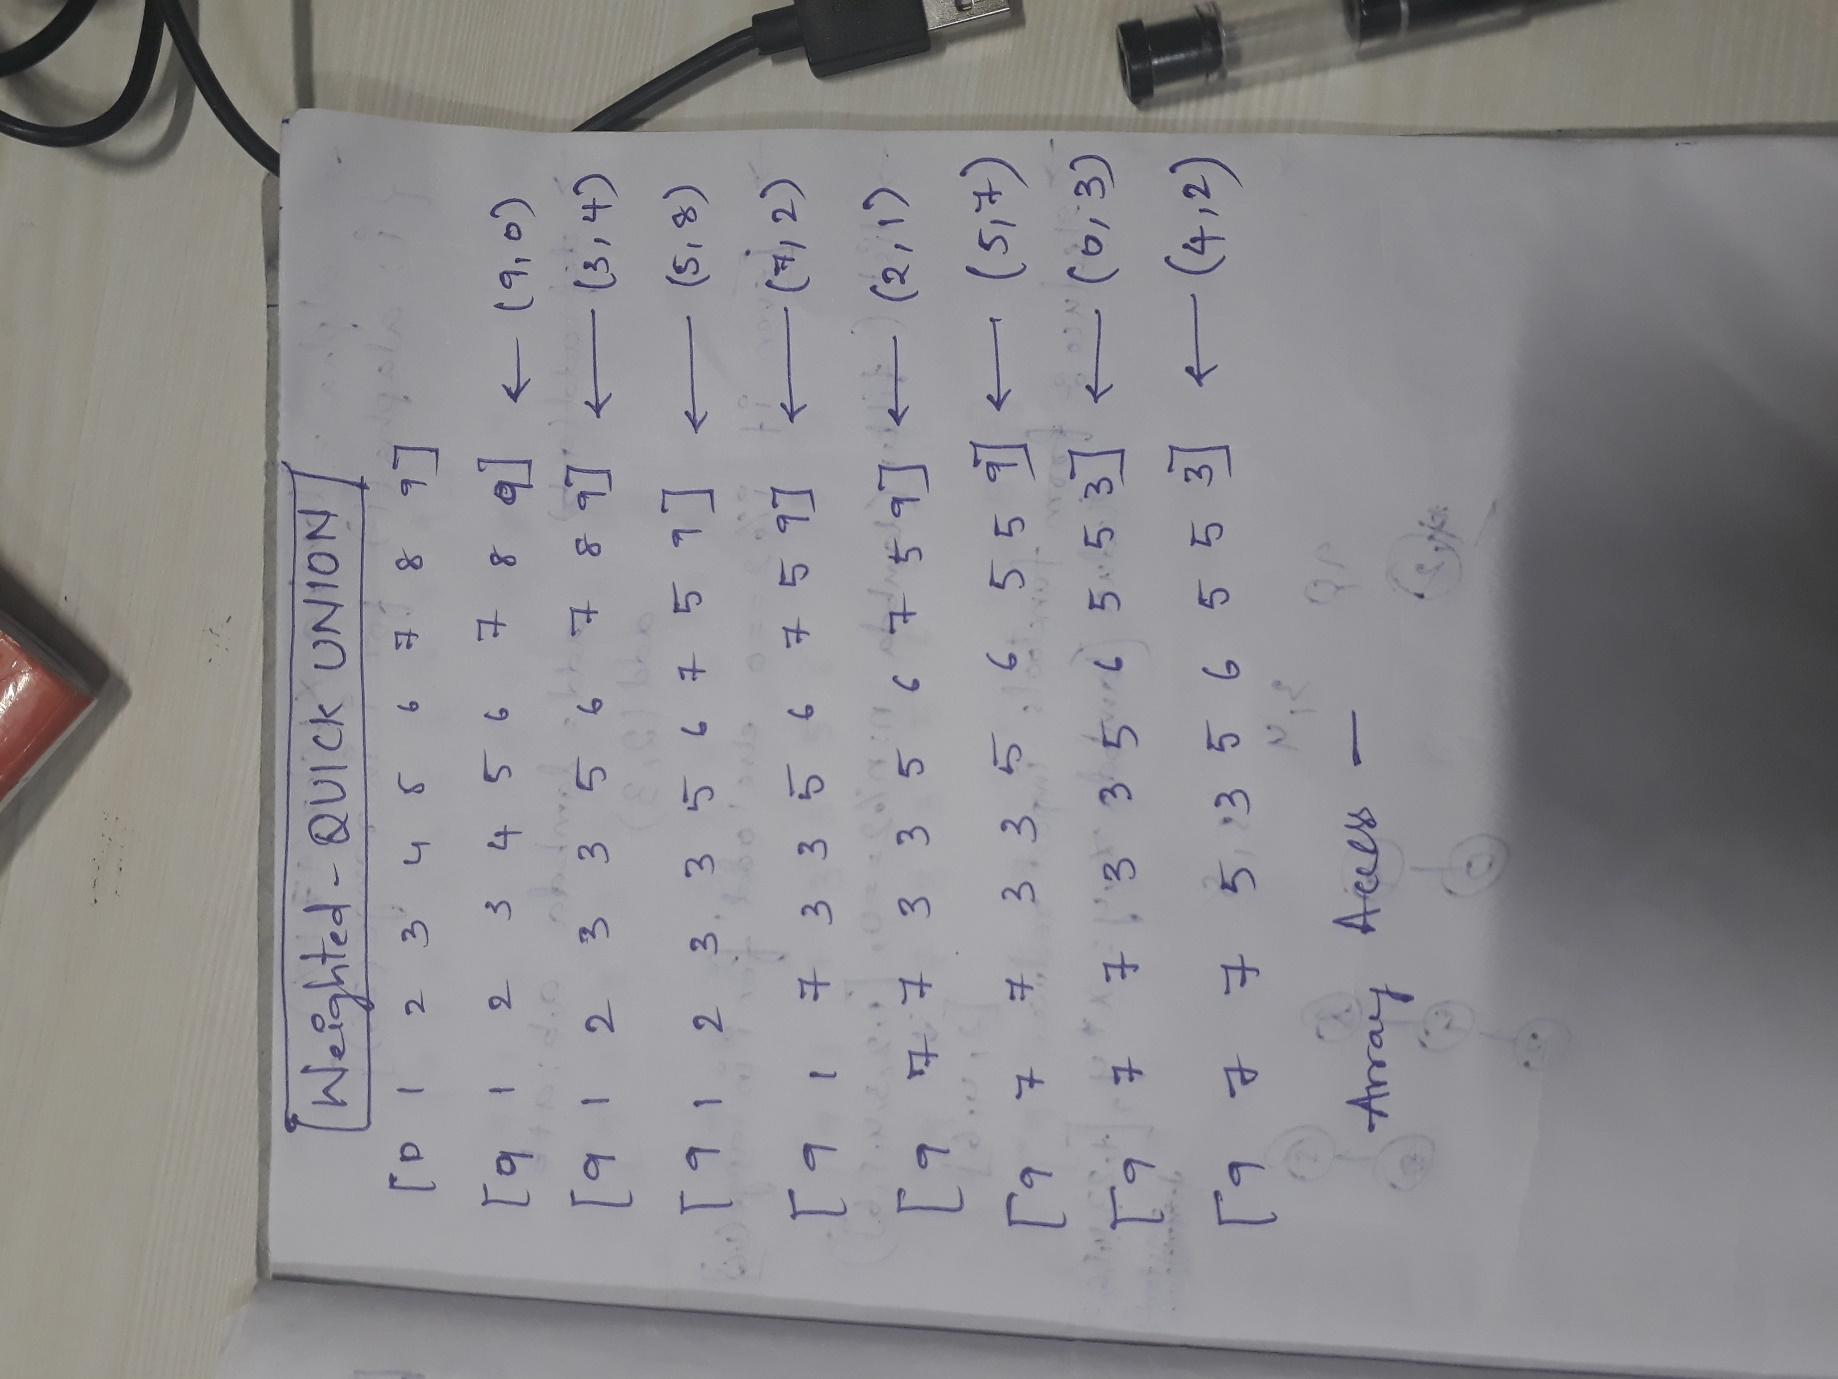 Weighted-QUICK UNION
[0 1 2 3 4 5 6 7 8 9]
[9 1 2 3 4 5 6 7 8 9] ← (9,0)
[9 1 2 3 3 5 6 7 8 9] ← (3,4)
[9 1 2 3 3 5 6 7 5 9] ← (5,8)
[9 1 7 3 3 5 6 7 5 9] ← (7,2)
[9 7 7 3 3 5 6 7 5 9] ← (2,1)
[9 7 7 3 3 5 6 5 5 9] ← (5,7)
[9 7 7 3 3 5 6 5 5 3] ← (0,3)
[9 7 7 5 3 5 6 5 5 3] ← (4,2)
Array Acess —